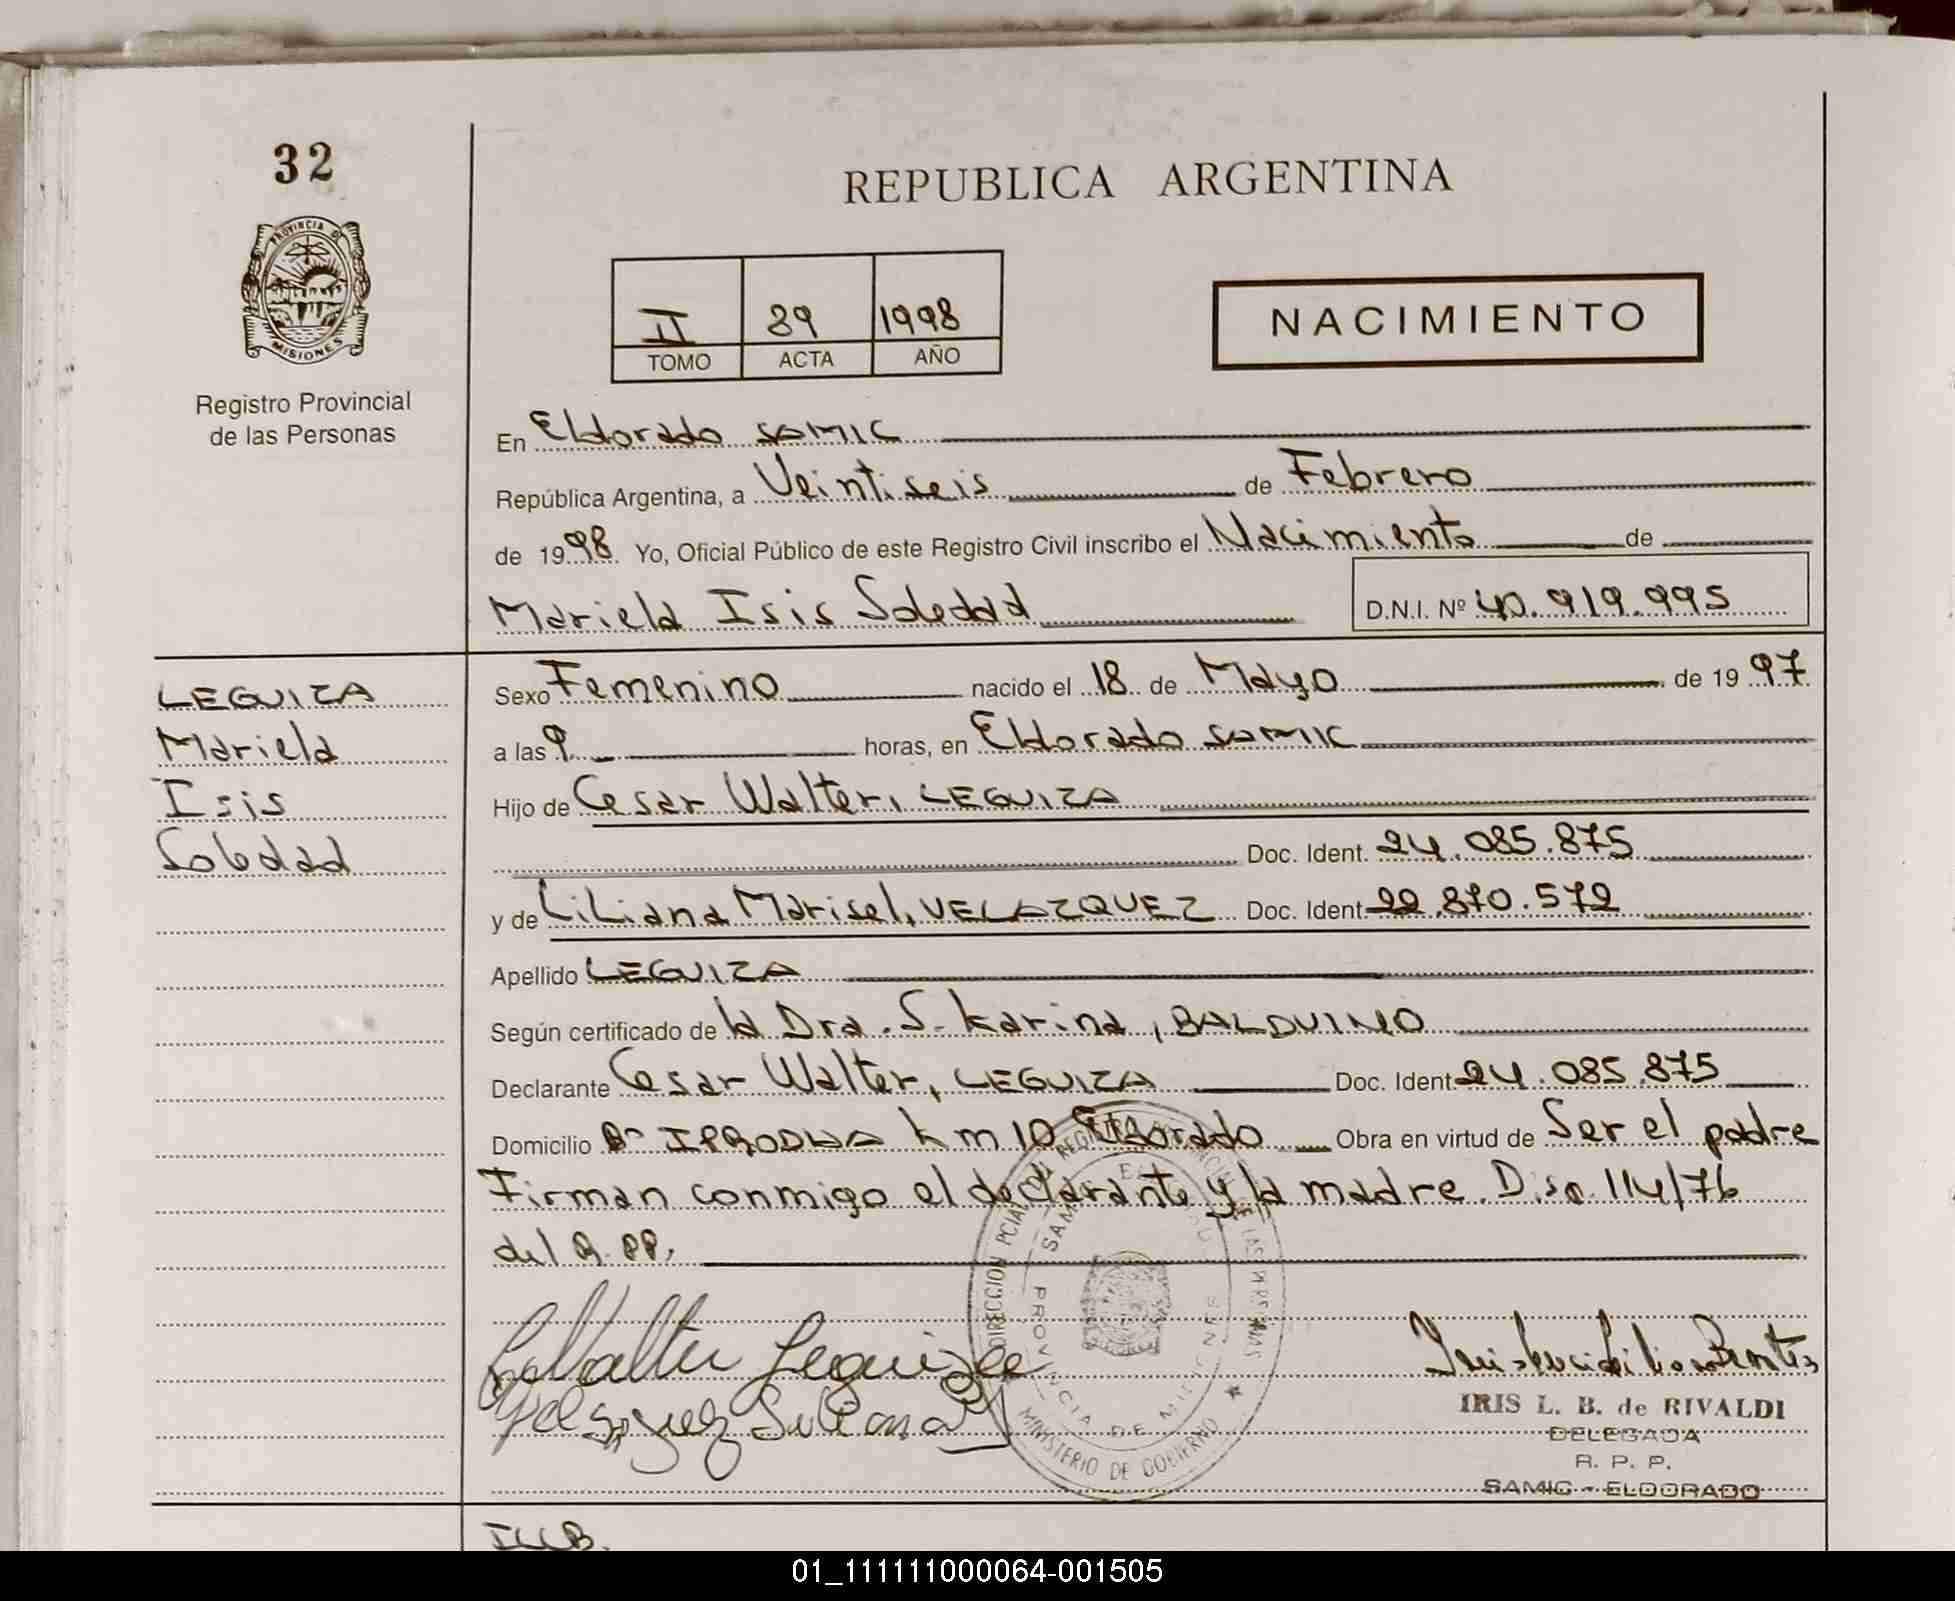 32
REPUBLICA ARGENTINA
PROVINCIA DE
MISIONES
Registro Provincial
de las Personas
II 89 1998
TOMO ACTA AÑO
NACIMIENTO
En Eldorado SAMIC
República Argentina, a Veintiseis de Febrero
de 1998 Yo, Oficial Público de este Registro Civil inscribo el Nacimiento de
Mariela Isis Soledad D.N.I. Nº 40.919.995
LEGUIZA
Mariela
Isis
Soledad
Sexo Femenino nacido el 18 de Mayo de 1997
a las 9 horas, en Eldorado SAMIC
Hijo de Cesar Walter, LEGUIZA
Doc. Ident. 24.085.875
y de Liliana Marisel, VELAZQUEZ Doc. Ident. 22.870.572
Apellido LEGUIZA
Según certificado de la Dra. S. Karina, BALDUINO
Declarante Cesar Walter, LEGUIZA Doc. Ident. 24.085.875
Domicilio Bº IPRODHA Km 10 Eldorado Obra en virtud de Ser el padre
Firman conmigo el declarante y la madre. Disp. 114/76
del R.PP.
Walter Leguiza
Velazquez Liliana
DIRECCION PCIAL REGISTRO LAS PERSONAS
SAMIC
PROVINCIA DE MISIONES
MINISTERIO DE GOBIERNO
IRIS L. B. de RIVALDI
DELEGADA
R. P. P.
SAMIC - ELDORADO
ILLB.
01_111111000064-001505